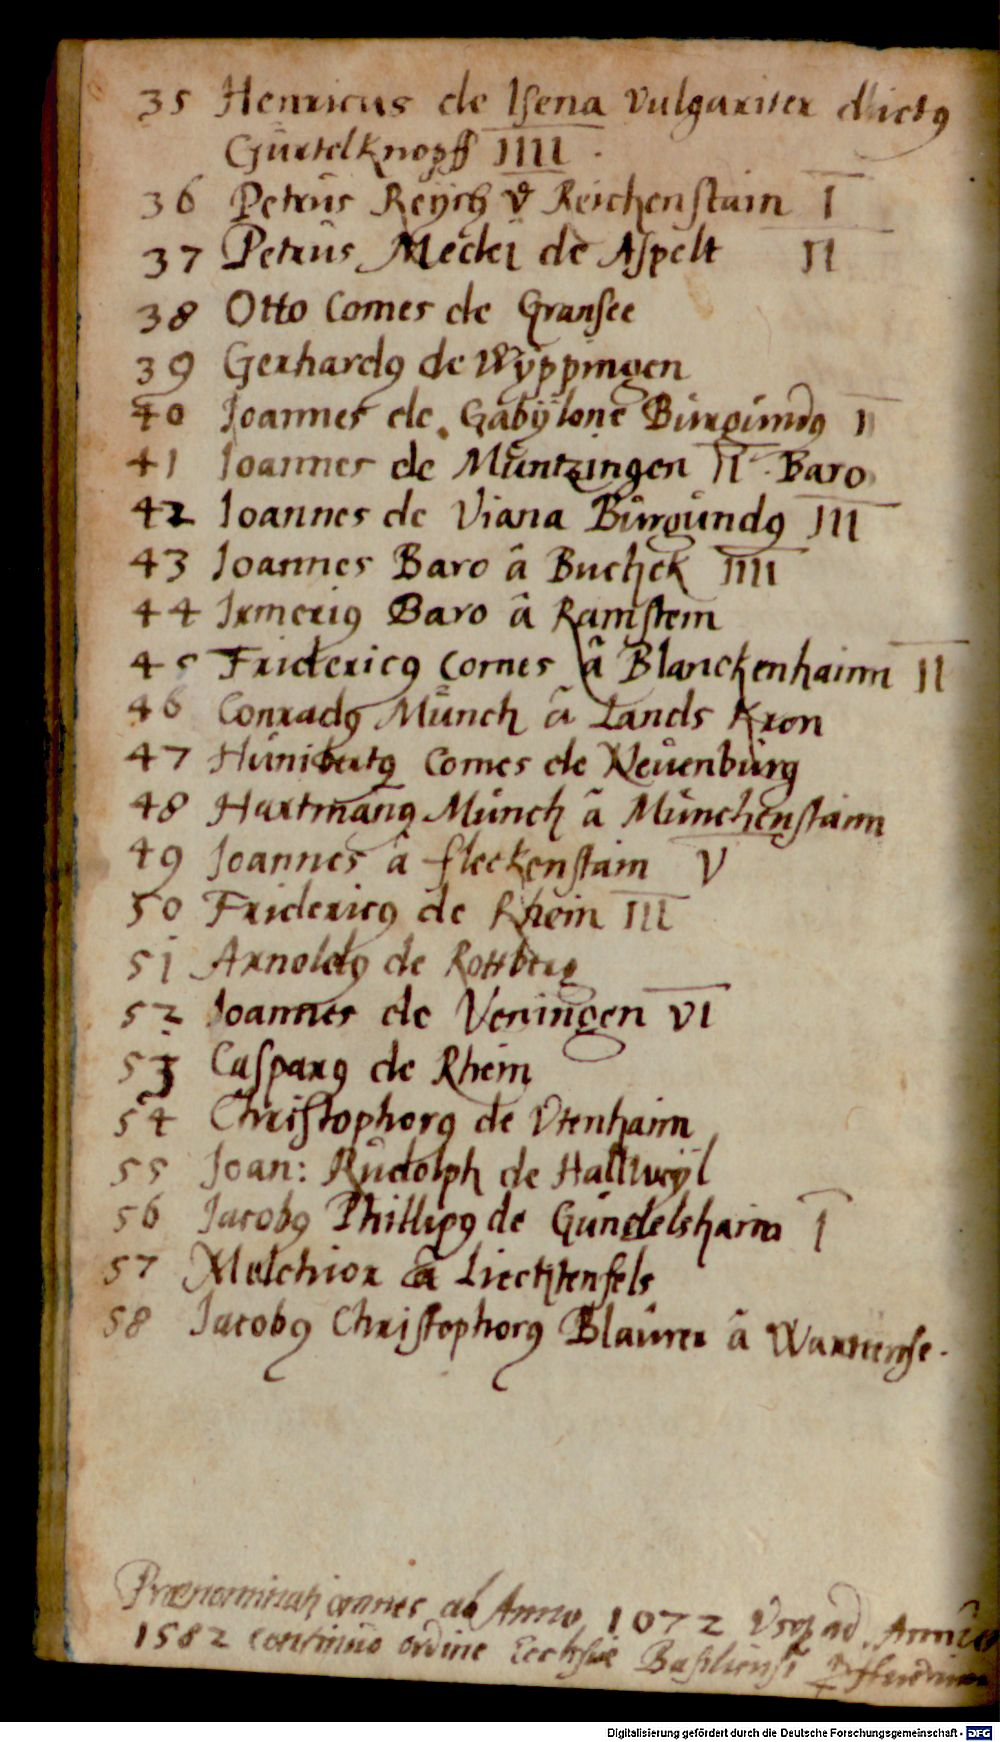 35 Henricus de Isena vulgariter dictꝯ
Gürtelknopff IIII .
36 Petrus Reÿch v̄ Reichenstain I
37 Petrus Meckel de Aspelt II
38 Otto Comes de Gransee
39 Gerhardꝯ de Wÿppingen
40 Joannes de Gabÿlone Burgundꝯ II
41 Joannes de Müntzingen II . Baro
42 Joannes de Viana Burgundꝯ III
43 Joannes Baro â Buchek IIII
44 Irmeriꝯ Baro â Ramstein
45 Fridericꝯ Comes â Blanckenhaim II
46 Conradꝯ Münch â Lands Kron
47 Hunibertꝯ Comes de Neuenburg
48 Hartmanꝯ Münch â Münchenstain
49 Joannes â fleckenstain V
50 Fridericꝯ de Rhein III
51 Arnoldꝯ de Rottberg
52 Joannes de Veningen VI
53 Casparꝯ de Rhein
54 Christophorꝯ de Vtenhaim
55 Joan: Rudolph de Hallweÿl
56 Jacobꝯ Phillipꝯ de Gundelshaim I
57 Melchior â Liechtenfels
58 Jacobꝯ Christophorꝯ Blaurer â Wartense .
Prænominati omnes ab Anno 1072 Vsqꝫ ad Annū
1582 continuo ordine Ecclesiæ Basiliensi
Digitalisierung gefördert durch die Deutsche Forschungsgemeinschaft - DFG